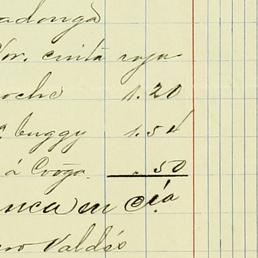 adonga
cinta roja
oche 1.20
buggy 1.50
á Croza. .50
anca en Cía
Valdés